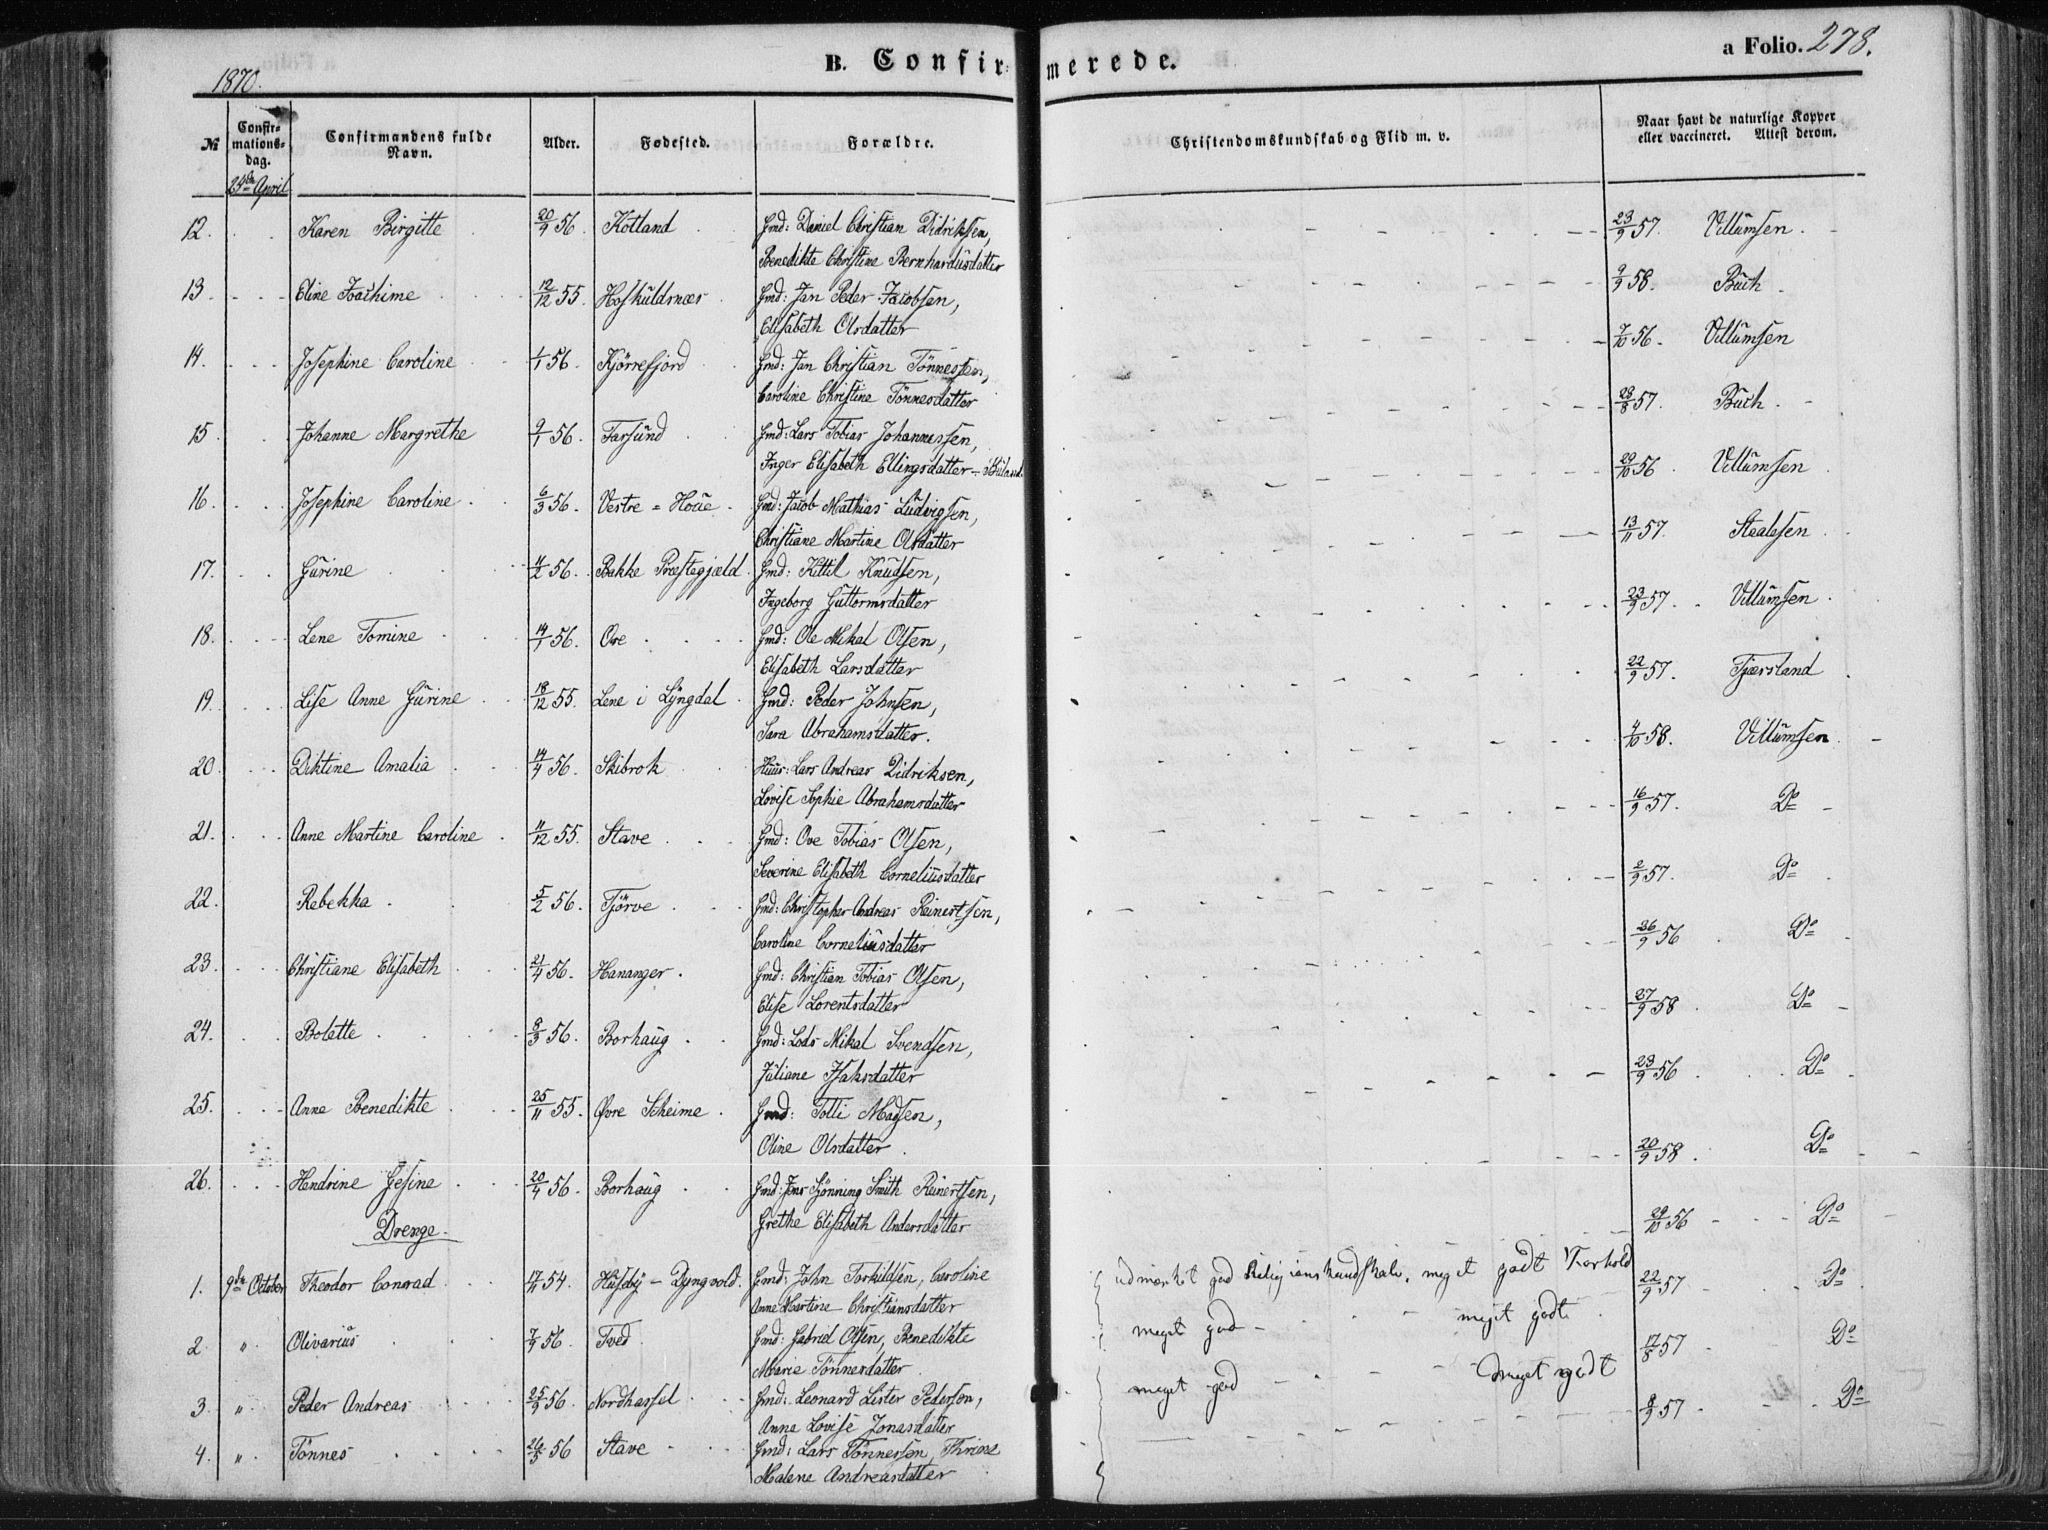 1870.
B. Confirmerede.
a Folio. 278.
№ Confirmationsdag. Confirmandens fulde Navn. Alder. Fødested. Forældre. Christendomskundskab og Flid m. v. Naar havt de naturlige Kopper eller vaccineret. Attest derom.
24de April
12. Karen Birgitte 20/9 56 Kotland Gmd: Daniel Christian Didriksen, 23/9 57. Villumsen
Benedikte Christine Bernhardusdatter
13. Eline Joachime 12/12 55. Hoskuldsnæs Gmd: Jan Peder Jacobsen, 9/9 58. Buch
Elisabeth Olsdatter
14. Josephine Caroline 1/1 56. Kjörrefjord Gmd: Jan Christian Tönnessen, 7/10 56. Villumsen
Caroline Christine Tönnesdatter
15. Johanne Margrethe 9/1 56. Farsund Gmd: Lars Tobias Johannessen, 28/8 57. Buch
Inger Elisabeth Ellingsdatter
16. Josephine Caroline 6/3 56. Vestre = Houe Gmd: Jacob Mathias Ludvigsen, 29/10 56 Villumsen
Christiane Martine Olsdatter
17. Gurine 4/2 56. Bakke Præstegjæld Gmd: Kittil Knudsen, 13/11 57. Staalesen
Ingeborg Guttormsdatter
18. Lene Tomine 14/1 56. Ore Gmd: Ole Mikal Olsen, 23/9 57. Villumsen
Elisabeth Larsdatter
19. Lise Anne Gurine 18/12 55. Lene i Lyngdal Gmd: Peder Johnsen, 22/9 57. Tjærsland
Sara Abrahamsdatter.
20. Diktine Amalia 14/4 56. Skibrok Huus: Lars Andreas Didriksen, 4/10 58. Villumsen
Lovise Sophie Abrahamsdatter
21. Anne Martine Caroline 11/12 55. Stave Gmd: Ove Tobias Olsen, 16/9 57. Do
Severine Elisabeth Corneliusdatter
22. Rebekka 5/2 56. Tjörve Gmd: Christopher Andreas Reinertsen, 2/9 57. Do
Caroline Corneliusdatter
23. Christiane Elisabeth 21/4 56. Hananger. Gmd: Christian Tobias Olsen, 26/9 56 Do
Elise Lorentsdatter
24. Bolette 8/3 56. Borhaug Gmd: Lods Mikal Svendsen, 27/9 58 Do
Juliane Isaksdatter
25. Anne Benedikte 25/11 55. Øvre Skeime Gmd: Tolli Madsen, 23/9 56 Do
Oline Olsdatter
26. Hendrine Gesine 20/4 56. Borhaug Gmd: Jens Grönning Smith Reinertsen, 20/9 58. Do
Grethe Elisabeth Andersdatter
Drenge. 29/10 56 Do
1. 9de October Theodor Conrad 17/11 54. Huseby - Dyngvold. Gmd: John Torkildsen, Caroline udmærket god Religionskundskab, meget godt Forhold 22/9 57 Do
Anne Martine Christiansdatter
2. " Olivarius 7/9 56. Tved Gmd: Gabriel Olsen, Benedikte meget god - meget godt 17/8 57 Do
Marie Tönnesdatter
3. " Peder Andreas 25/9 56. Nordhassel Gmd: Leonard Lister Pedersen, meget god - meget godt 8/9 57 Do
Anne Lovise Jonasdatter
4. " Tönnes 26/5 56 Stave Gmd: Lars Tönnessen, Thrine
Malene Andreasdatter